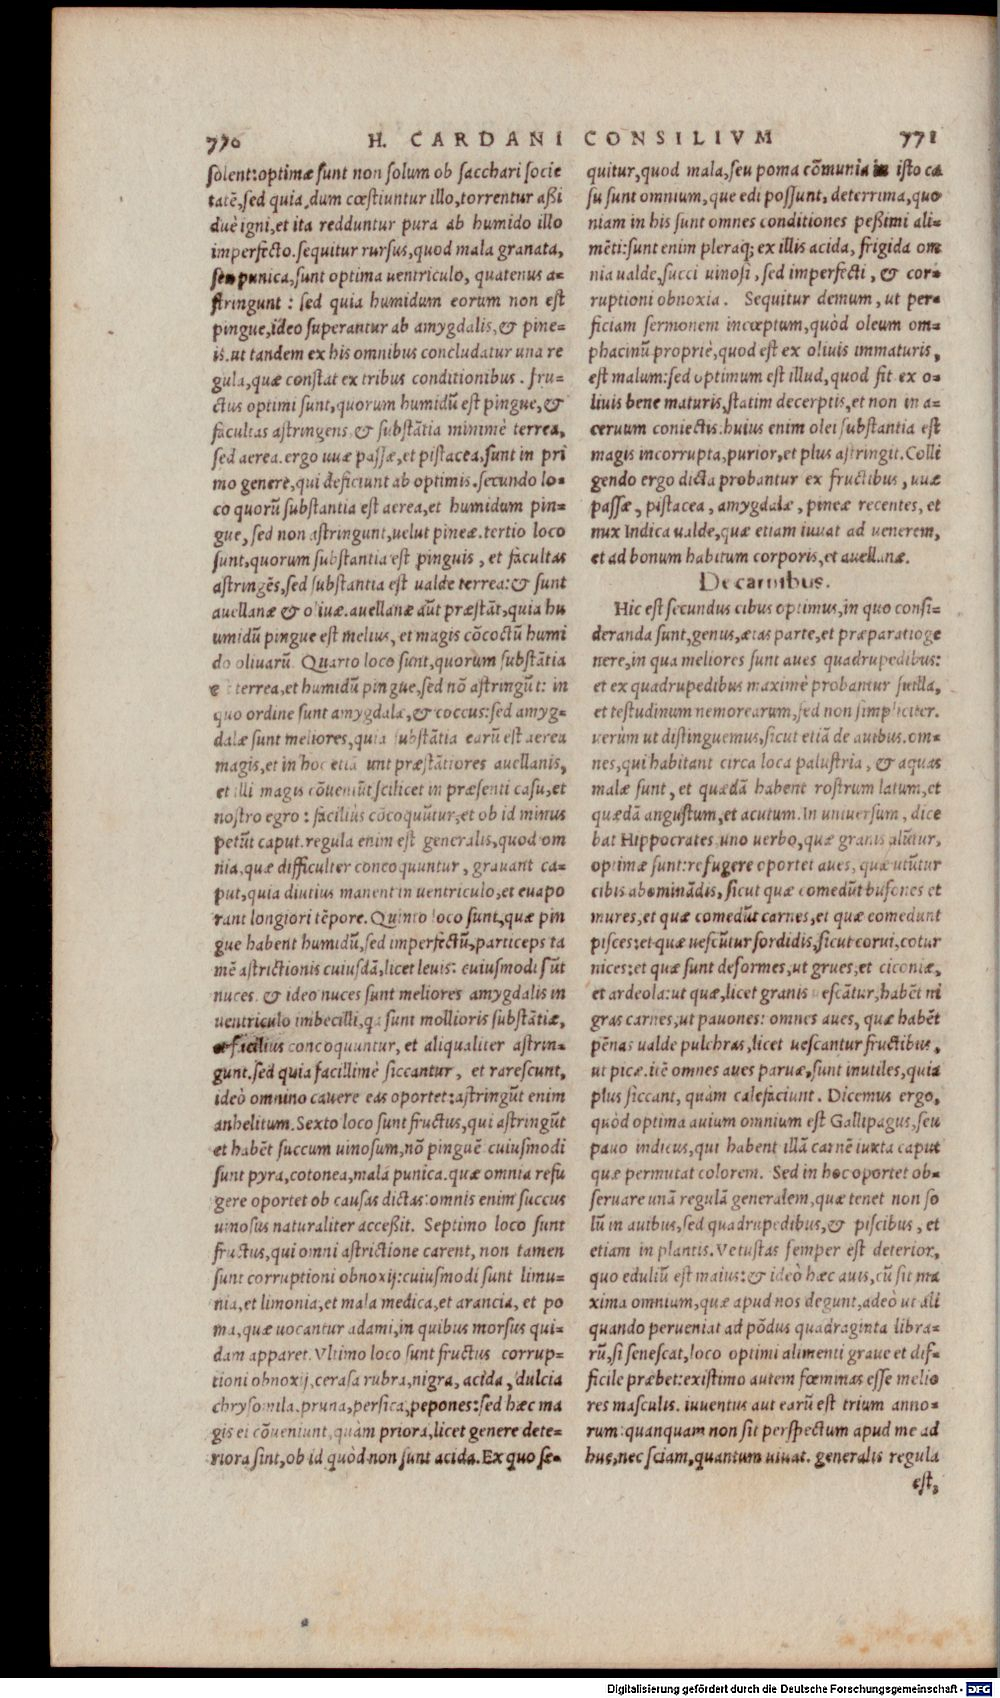 770 H. CARDANI CONSILIVM 771
solent: optimæ sunt non solum ob sacchari socie
tatē, sed quia, dum cœstiuntur illo, torrentur aßi
duè igni, et ita redduntur pura ab humido illo
imperfecto. sequitur rursus, quod mala granata,
seu punica, sunt optima uentriculo, quatenus a=
stringunt: sed quia humidum eorum non est
pingue, ideo superantur ab amygdalis, & pine=
is. ut tandem ex his omnibus concludatur una re
gula, quæ constat ex tribus conditionibus. fru=
ctus optimi sunt, quorum humidū est pingue, &
facultas astringens & substātia minimè terrea,
sed aerea. ergo uuæ passæ, et pistacea, sunt in pri
mo genere, qui deficiunt ab optimis. secundo lo=
co quorū substantia est aerea, et humidum pin=
gue, sed non astringunt, uelut pineæ. tertio loco
sunt, quorum substantia est pinguis, et facultas
astringēs, sed substantia est ualde terrea: & sunt
auellanæ & oliuæ. auellanæ aūt præstāt, quia hu
umidū pingue est melius, et magis cōcoctū humi
do oliuarū. Quarto loco sunt, quorum substātia
terrea, et humidū pingue, sed nō astringūt: in
quo ordine sunt amygdalæ, & coccus: sed amyg=
dalæ sunt meliores, quia substātia earū est aerea
magis, et in hoc etiā sunt præstātiores auellanis,
et illi magis cōueniūt scilicet in præsenti casu, et
nostro egro: faciliùs cōcoquūtur, et ob id minus
petūt caput. regula enim est generalis, quod om
nia, quæ difficulter concoquuntur, grauant ca=
put, quia diutius manent in uentriculo, et euapo
rant longiori tēpore. Quinto loco sunt, quæ pin
gue habent humidū, sed imperfectū, particeps ta
mē astrictionis cuiusdā, licet leuis: euiusmodi sūt
nuces. & ideo nuces sunt meliores amygdalis in
uentriculo imbecilli, qa sunt mollioris substātiæ,
et facilius concoquuntur, et aliqualiter astrin=
gunt. sed quia facillimè siccantur, et rarescunt,
ideò omnino cauere eas oportet: astringūt enim
anhelitum. Sexto loco sunt fructus, qui astringūt
et habēt succum uinosum, nō pinguē cuiusmodi
sunt pyra, cotonea, mala punica. quæ omnia refu
gere oportet ob causas dictas: omnis enim succus
uinosus naturaliter acceßit. Septimo loco sunt
fructus, qui omni astrictione carent, non tamen
sunt corruptioni obnoxij: cuiusmodi sunt limu=
nia, et limonia, et mala medica, et arancia, et po
ma, quæ uocantur adami, in quibus morsus qui=
dam apparet. Vltimo loco sunt fructus corrup=
tioni obnoxij, cerasa rubra, nigra, acida, dulcia
chrysomila. pruna, persica, pepones: sed hæc ma
gis ei cōueniunt, quàm priora, licet genere dete=
riora sint, ob id quòd non sunt acida. Ex quo se=
quitur, quod mala, seu poma cōmunia in isto ca
su sunt omnium, que edi possunt, deterrima, quo
niam in his sunt omnes conditiones peßimi ali=
mēti: sunt enim pleraq; ex illis acida, frigida om
nia ualde, succi uinosi, sed imperfecti, & cor=
ruptioni obnoxia. Sequitur demum, ut per=
ficiam sermonem incœptum, quòd oleum om=
phacinū propriè, quod est ex oliuis immaturis,
est malum: sed optimum est illud, quod fit ex o=
liuis bene maturis, statim decerptis, et non in a=
ceruum coniectis: huius enim olei substantia est
magis incorrupta, purior, et plus astringit. Colli
gendo ergo dicta probantur ex fructibus, uuæ
passæ, pistacea, amygdalæ, pineæ recentes, et
nux Indica ualde, quæ etiam iuuat ad uenerem,
et ad bonum habitum corporis, et auellanæ.
De carnibus.
Hic est secundus cibus optimus, in quo consi=
deranda sunt, genus, ætas parte, et præparatio ge
nere, in qua meliores sunt aues quadrupedibus:
et ex quadrupedibus maximè probantur suilla,
et testudinum nemorearum, sed non simpliciter.
uerùm ut distinguemus, sicut etiā de auibus. om=
nes, qui habitant circa loca palustria, & aquas
malæ sunt, et quædā habent rostrum latum, et
quædā angustum, et acutum. In uniuersum, dice
bat Hippocrates uno uerbo, quæ granis alūtur,
optimæ sunt: refugere oportet aues, quæ utūtur
cibis abominādis, sicut quæ comedūt bufones et
mures, et quæ comedūt carnes, et quæ comedunt
pisces: et quæ uescūtur sordidis, sicut corui, cotur
nices: et quæ sunt deformes, ut grues, et ciconiæ,
et ardeola: ut quæ, licet granis uescātur, habēt ni
gras carnes, ut pauones: omnes aues, quæ habēt
pēnas ualde pulchras, licet uescantur fructibus,
ut picæ. itē omnes aues paruæ, sunt inutiles, quia
plus siccant, quàm calefaciunt. Dicemus ergo,
quòd optima auium omnium est Gallipagus, seu
pauo indicus, qui habent illā carnē iuxta caput
quæ permutat colorem. Sed in hoc oportet ob=
seruare unā regulā generalem, quæ tenet non so
lū in auibus, sed quadrupedibus, & piscibus, et
etiam in plantis. Vetustas semper est deterior,
quo eduliū est maius: & ideò hæc auis, cū sit ma
xima omnium, quæ apud nos degunt, adeò ut ali
quando perueniat ad pōdus quadraginta libra=
rū, si senescat, loco optimi alimenti graue et dif=
ficile præbet: existimo autem fœminas esse melio
res masculis. iuuentus aut earū est trium anno=
rum: quanquam non sit perspectum apud me ad
huc, nec sciam, quantum uiuat. generalis regula
est,
Digitalisierung gefördert durch die Deutsche Forschungsgemeinschaft - DFG